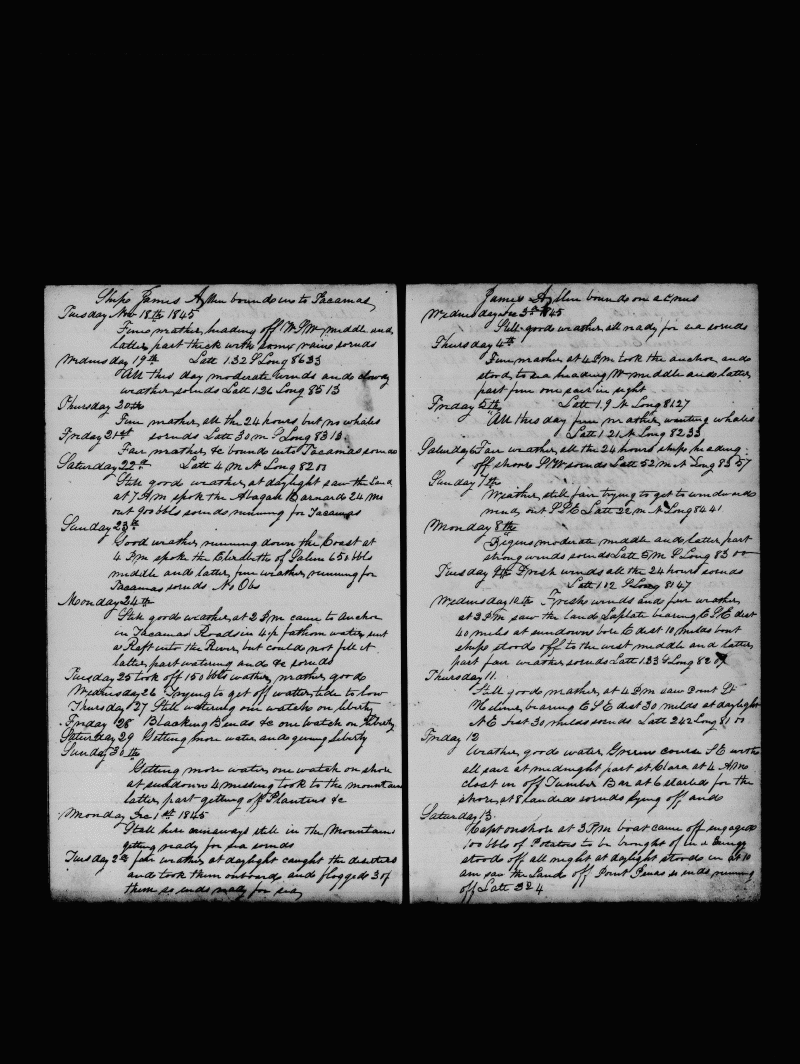 Ships James Allen bound in to Tacamas
Tuesday Nov 18th 1845
Fine weather, heading off middle and
latter part thick with some rains so ends
Wednesday 19th Latt 1.32 S Long 86 33
All this day moderate winds and
weather so ends Latt 1 26 Long 85 13
Thursday 20th
Fine weather, all the 24 hours, but no whales
Friday 21st so ends Latt 30 m S Long 83 10
Fair weather, &c bound into Tacamas so ends
Saturday 22nd Latt 4 M N Long 82 00
Still good weather, at daylight saw the Land
at 7 AM spok the Abagail Barnard 24 Ms
out 900 bbls so ends running for Tacamas
Sunday 23d
Good weather running down the Coast at
4 PM spoke the Elizabeth of Salem 650 bbls
middle and latter, fine weather, running for
Tacamas so ends No Obs
Monday 24th
Still good weather, at 2 PM came to Anchor
in Tacamas Roads in 4½ fathom water sent
a Raft into the River, but could not fill it
latter part watering and &c so ends
Tuesday 25 took off 150 bbls water, weather good
Wednesday 26 Trying to get off water, tide to low
Thursday 27 Still watering one watch on liberty
Friday 28 Blacking Bends &c one Watch on liberty
Saturday 29 Getting more water and giving Liberty
Sunday 30th
Getting more water one watch on shore
at sundown 4 missing took to the mountains
latter part getting off Planters &c
Monday Dec 1st 1845
Still here runaways still in the Mountains
getting ready for sea so ends
Tuesday 2d fair weather at daylight caught the deserters
and took them onboard and flogged 3 of
them so ends ready for sea
James Allen bound on a cruis
Wednesday Dec 3d 1845
Still good weather all ready for sea so ends
Thursday 4th
Fine weather at 4 PM took the anchor and
stood to sea heading W middle and latter,
part fine one sail in sight
Friday 5th Latt 1.9 N Long 81 27
All this day fine weather, wanting whales
Latt 1 21 N Long 82 33
Saturday 6 Fair weather, all the 24 hours ships heading
off shore so ends Latt 52 m N Long 83 57
Sunday 7th
Weather, still fair trying to get to windward
Latt 22 m N Long 84 41
Monday 8th
Begins, moderate, middle and latter part
strong winds so ends Latt 5 M S Long 83 00
Tuesday 9th Fresh winds all the 24 hours so ends
Latt 1 12 S Long 81 47
Wednesday 10th Fresh winds and fair weather,
at 3 PM saw the land Laplate bearing ESE dist
40 miles at sundown bore E dist 10 miles
ships stood off to the west middle and latter,
part fair weather so ends Latt 1 33 S Long 82
Thursday 11.
Still good weather, at 4 PM saw Point St
Helina, bearing ESE dist 30 miles at daylight
NE dist 30 miles so ends Latt 2 42 Long 81 00
Friday 12
Weather, good water, Green course SE with
all sail at midnight past St Clara at 4 AM
close in off Tumber Bar at 6 started for the
shore, at 8 landed so ends lying off and
Saturday 13.
Capt on shore at 3 PM boat came off engaged
100 bbls of Potatos to be brought of in a
stood off all night at daylight stood in at 10
am saw the Land off Point so ends running
off Latt 3 24